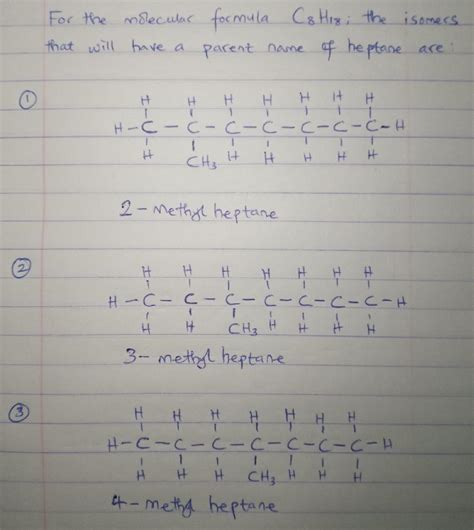 For the molecular formula C8H18; the isomers
that will have a parent name of heptane are:
①
H H H H H H H
H-C-C-C-C-C-C-C-H
H CH3 H H H H H
2-methyl heptane
②
H H H H H H H
H-C-C-C-C-C-C-C-H
H H CH3 H H H H
3-methyl heptane
③
H H H H H H H
H-C-C-C-C-C-C-C-H
H H H CH3 H H H
4-methyl heptane